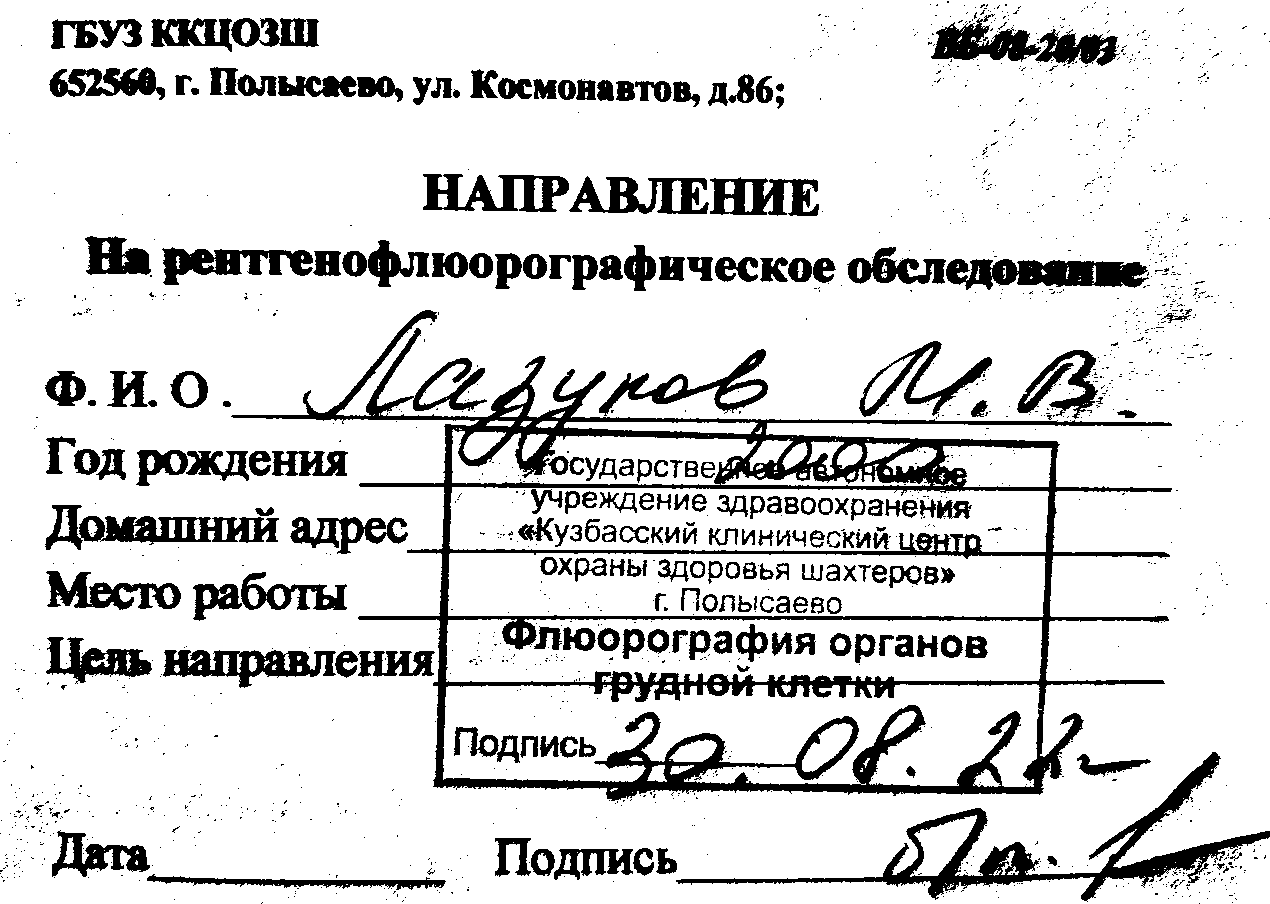 ГБУЗ ККЦОЗШ
ВБ-08-20/03
652560, г. Полысаево, ул. Космонавтов, д.86;
НАПРАВЛЕНИЕ
На рентгенофлюорографическое обследование
Ф. И. О . Лазуков М. В.
Год рождения 2000
Домашний адрес
Место работы
Цель направления
Государственное автономное
учреждение здравоохранения
«Кузбасский клинический центр
охраны здоровья шахтеров»
г. Полысаево
Флюорография органов
грудной клетки
Подпись 30. 08. 22
Дата
Подпись